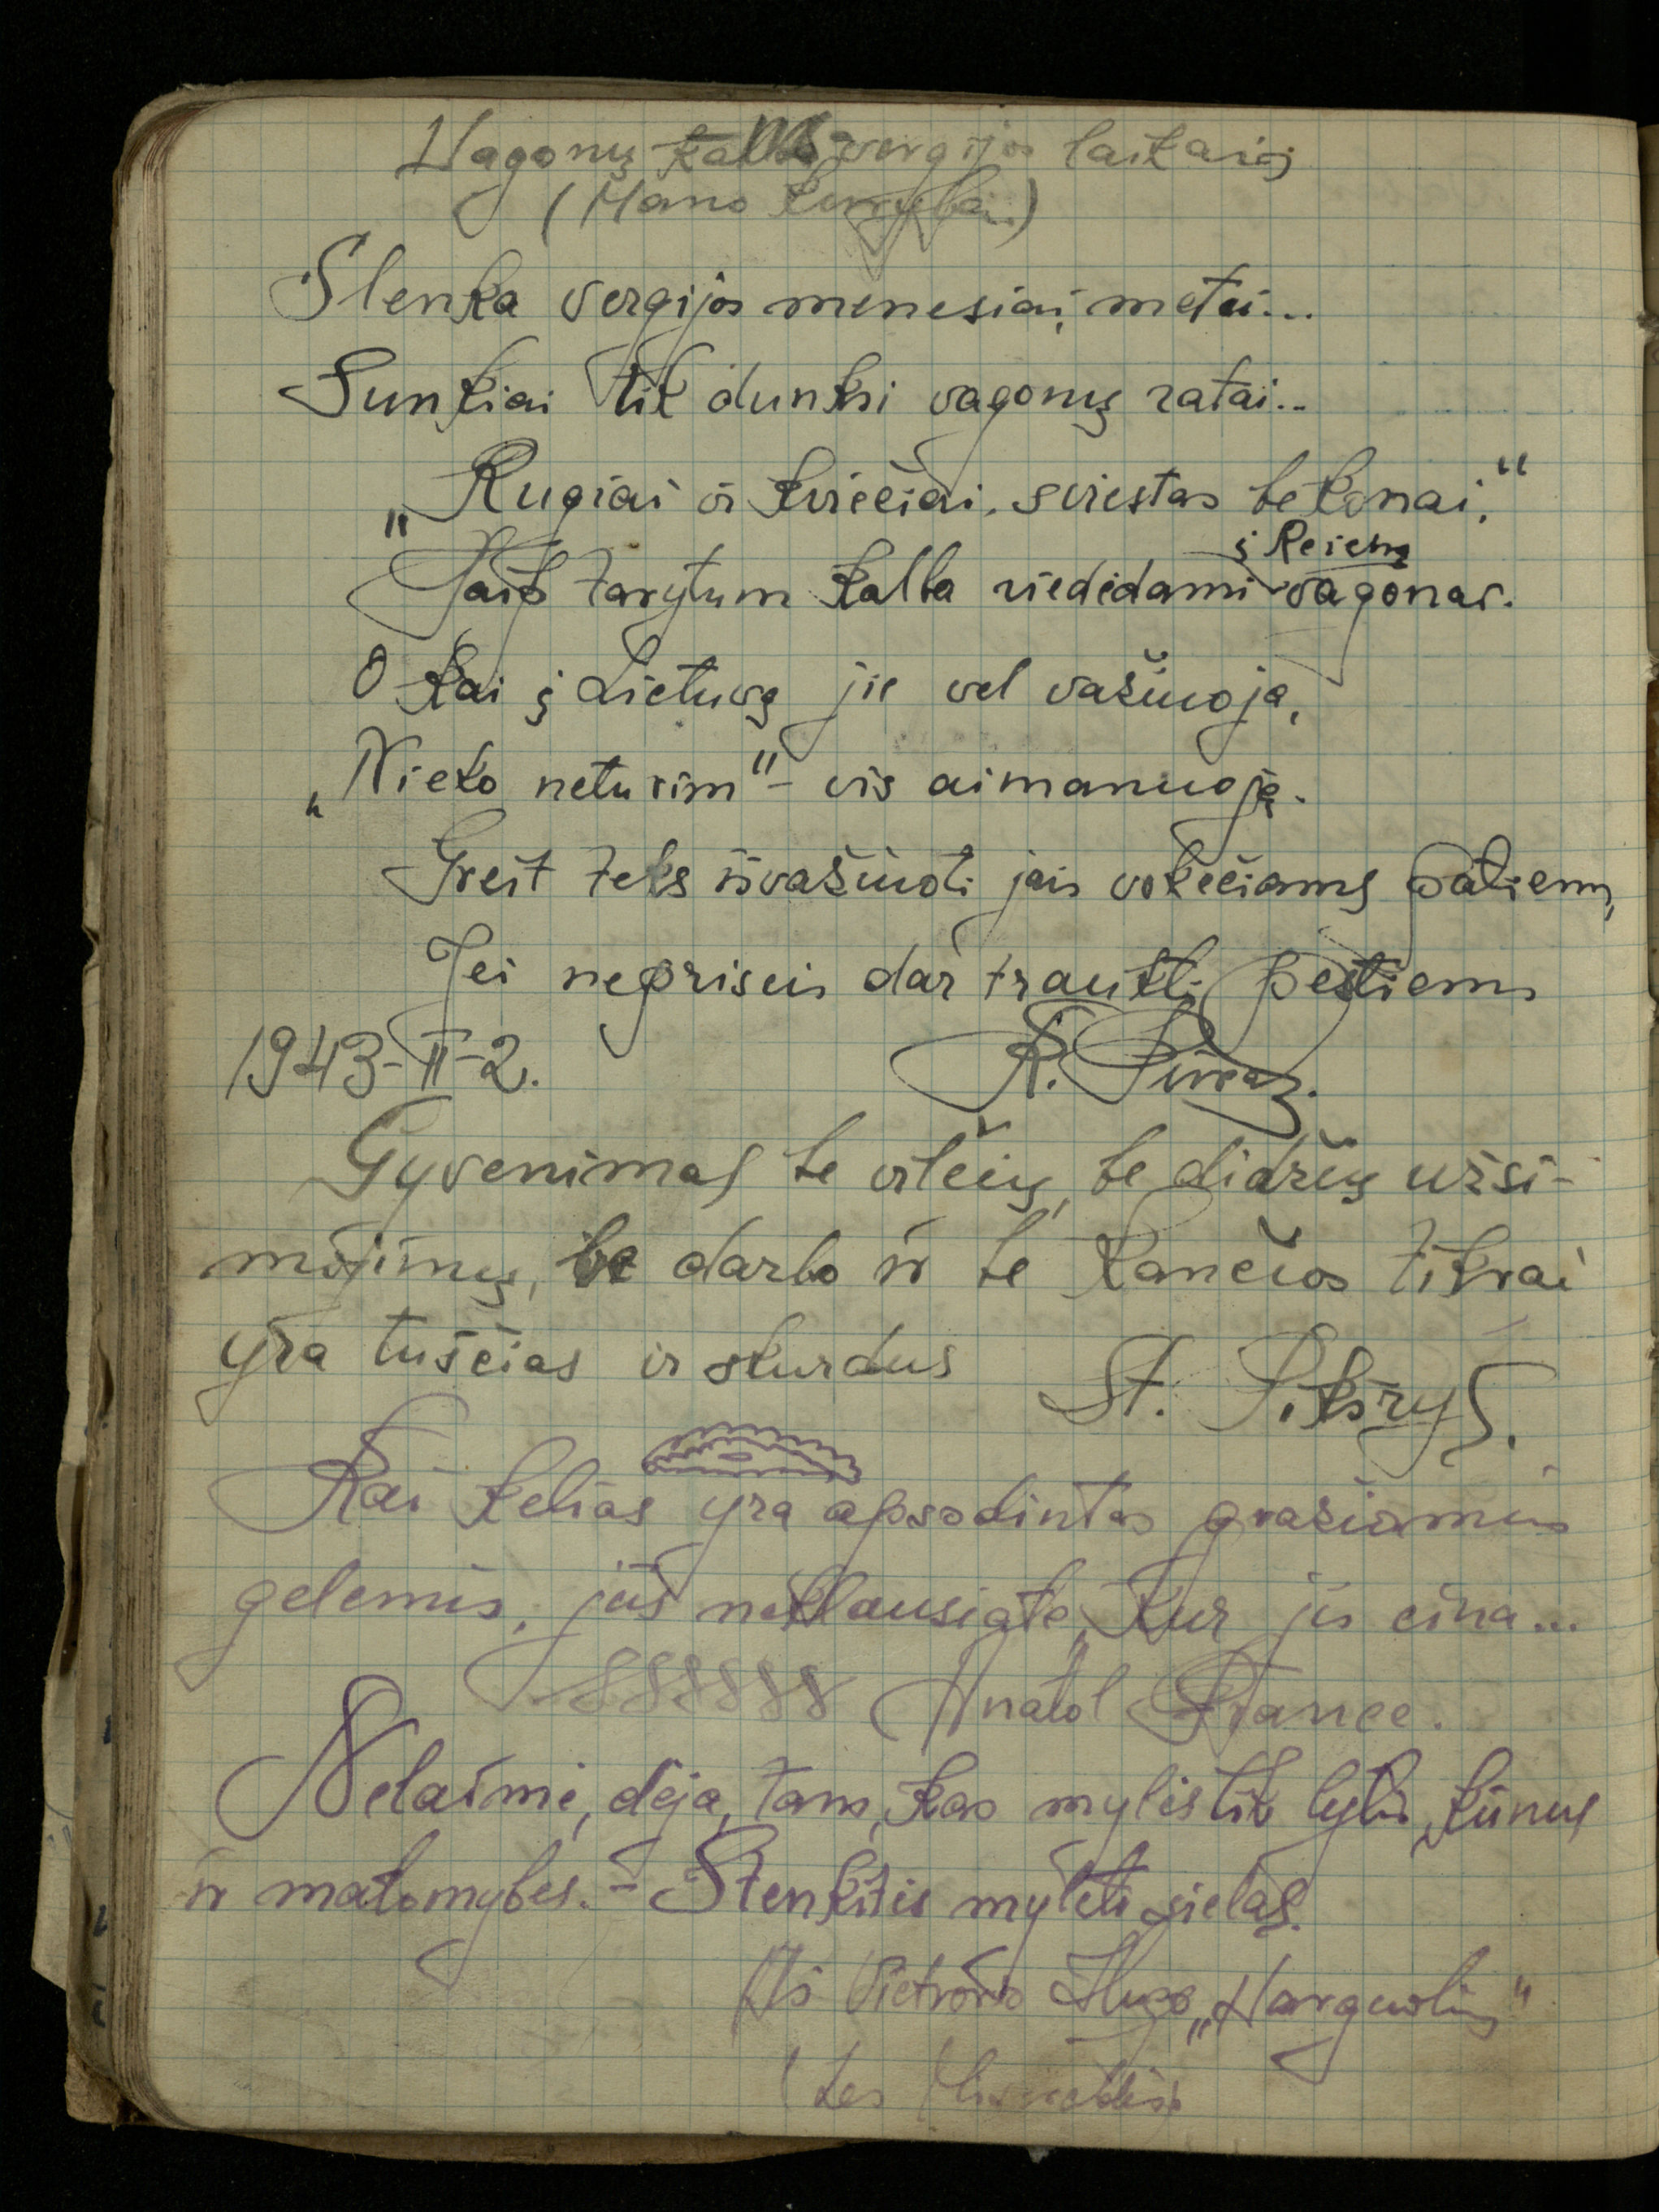 Vagonų kalba vergijos laikais
(Mano kuryba.)
Slenka vergijos menesiai, metai...
Sunkiai tik dunksi vagonų ratai..
„Rugiai ir kviečiai, sviestas bekonai,"
į Reichą
Taip tarytum kalba riedėdami vagonai.
O kai į Lietuvą jie vel važiuoja,
„Nieko neturim" – vis aimanuoja.
Greit teks išvažiuoti jais vokečiams patiems,
Jei nepriseis dar traukti pėstiems
1943-II-2.
Gyvenimas be vilčių, be didžių užsi-
mojimų, be darbo ir be kančios tikrai
yra tuščias ir skurdus
St. Pikšrys.
Kai kelias yra apsodintas gražiomis
gelemis, jūs neklausiate, kur jis eina...
Anatol France.
Nelaimė, dėja, tam, kas mylės tik lytis, kūnus
ir matomybes. – Stenkitis mylėti sielas.
Iš Victoro Hugo „Varguolių"
(Les